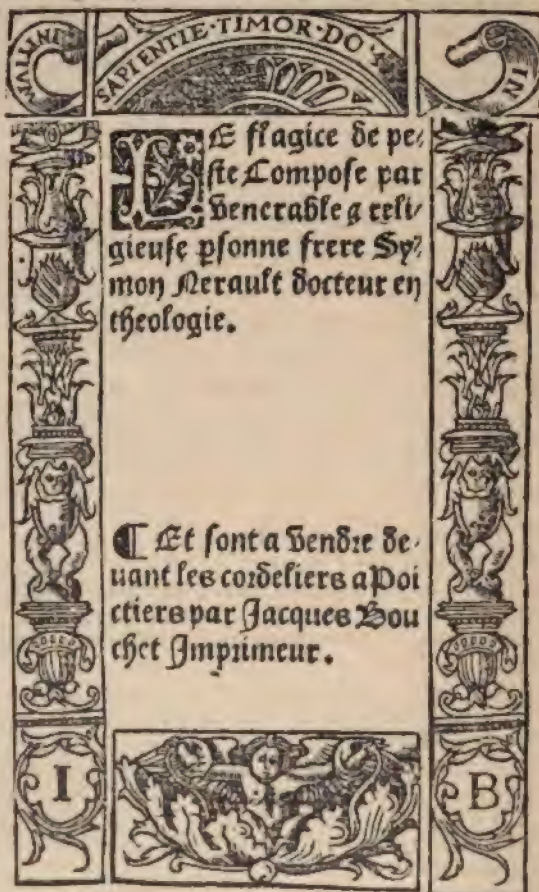 SAPIENTIE·TIMOR·DO
IN
LE flagice de pe⸗
ste Compose par
venerable & reli⸗
gieuse psonne frere Sy⸗
mon Nerault docteur en
theologie.
¶ Et sont a vendre de⸗
uant les cordeliers a Poi
ctiers par Jacques Bou
chet Imprimeur.
I B